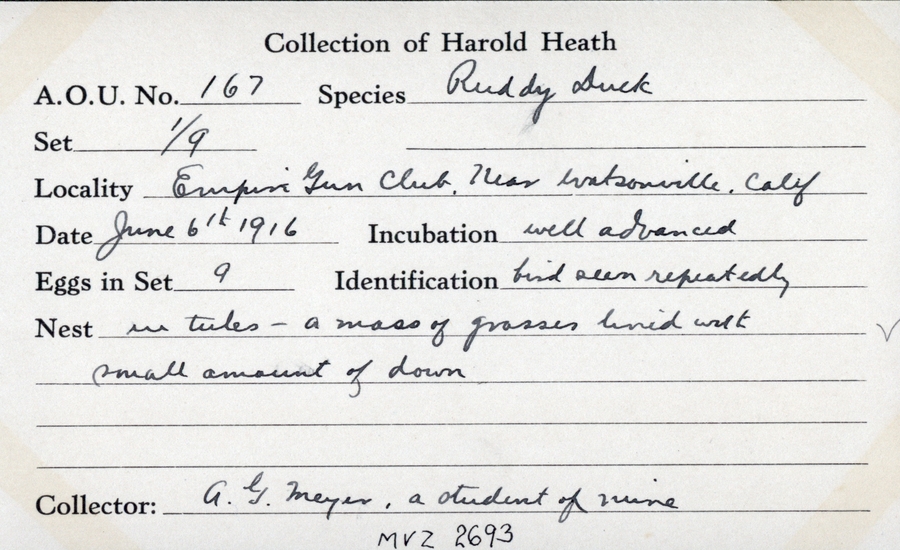 Collection of Harold Heath
A.O.U. No. 167 Species Ruddy Duck
Set 1/9
Locality Empire Gun Club, Near Watsonville, Calif
Date June 6th 1916 Incubation well advanced
Eggs in Set 9 Identification bird seen repeatedly
Nest in tules - a mass of grasses lined with
small amount of down
Collector: A. G. Meyer, a student of mine
MVZ 2693